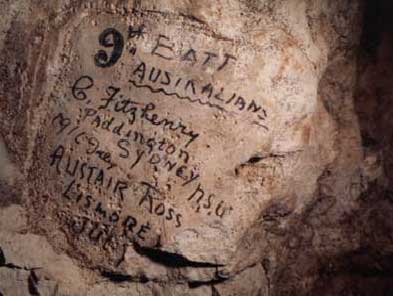 9TH BATT
AUSTRALIANS
G. Fitzhenry
Paddington
SYDNEY
N.S.W
ALISTAIR ROSS
LISMORE
JULY